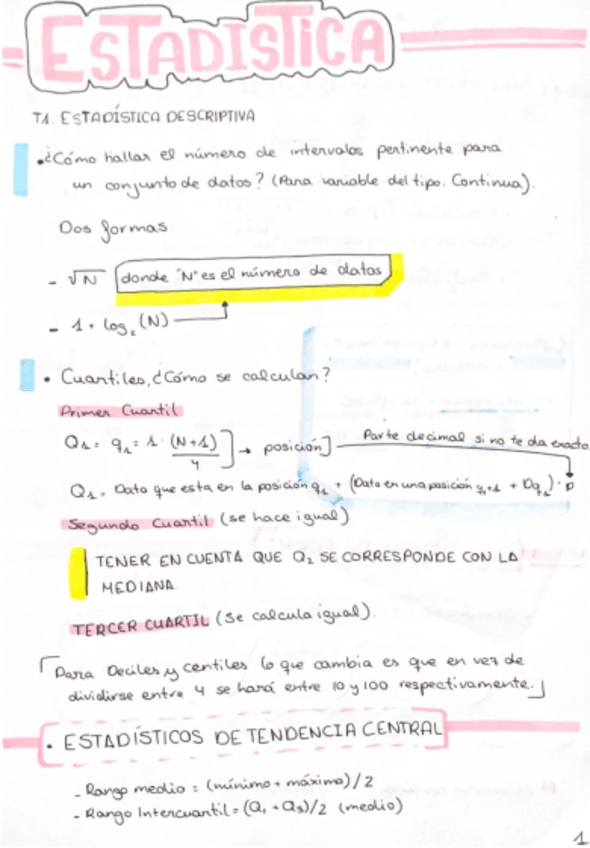 ESTADÍSTICA
T1. ESTADÍSTICA DESCRIPTIVA
• ¿Cómo hallar el número de intervalos pertinente para
un conjunto de datos? (Para variable del tipo. Continua).
Dos formas:
- √N donde "N" es el número de datos
- 1 + log₂ (N)
• Cuantiles, ¿Cómo se calculan?
Primer Cuartil
Q₁ = q₁ = 1 · (N+1)/4 ] → posición] Parte decimal si no te da exacto
Q₁ = Dato que esta en la posición q₁ + (Dato en una posición q₁+1 + Dq₁) · p
Segundo Cuartil (se hace igual)
TENER EN CUENTA QUE Q₂ SE CORRESPONDE CON LA
MEDIANA.
TERCER CUARTIL (Se calcula igual).
Para Deciles y centiles lo que cambia es que en vez de
dividirse entre 4 se hará entre 10 y 100 respectivamente.
• ESTADÍSTICOS DE TENDENCIA CENTRAL
- Rango medio = (mínimo + máximo) / 2
- Rango Intercuartil = (Q₁ + Q₃)/2 (medio)
1